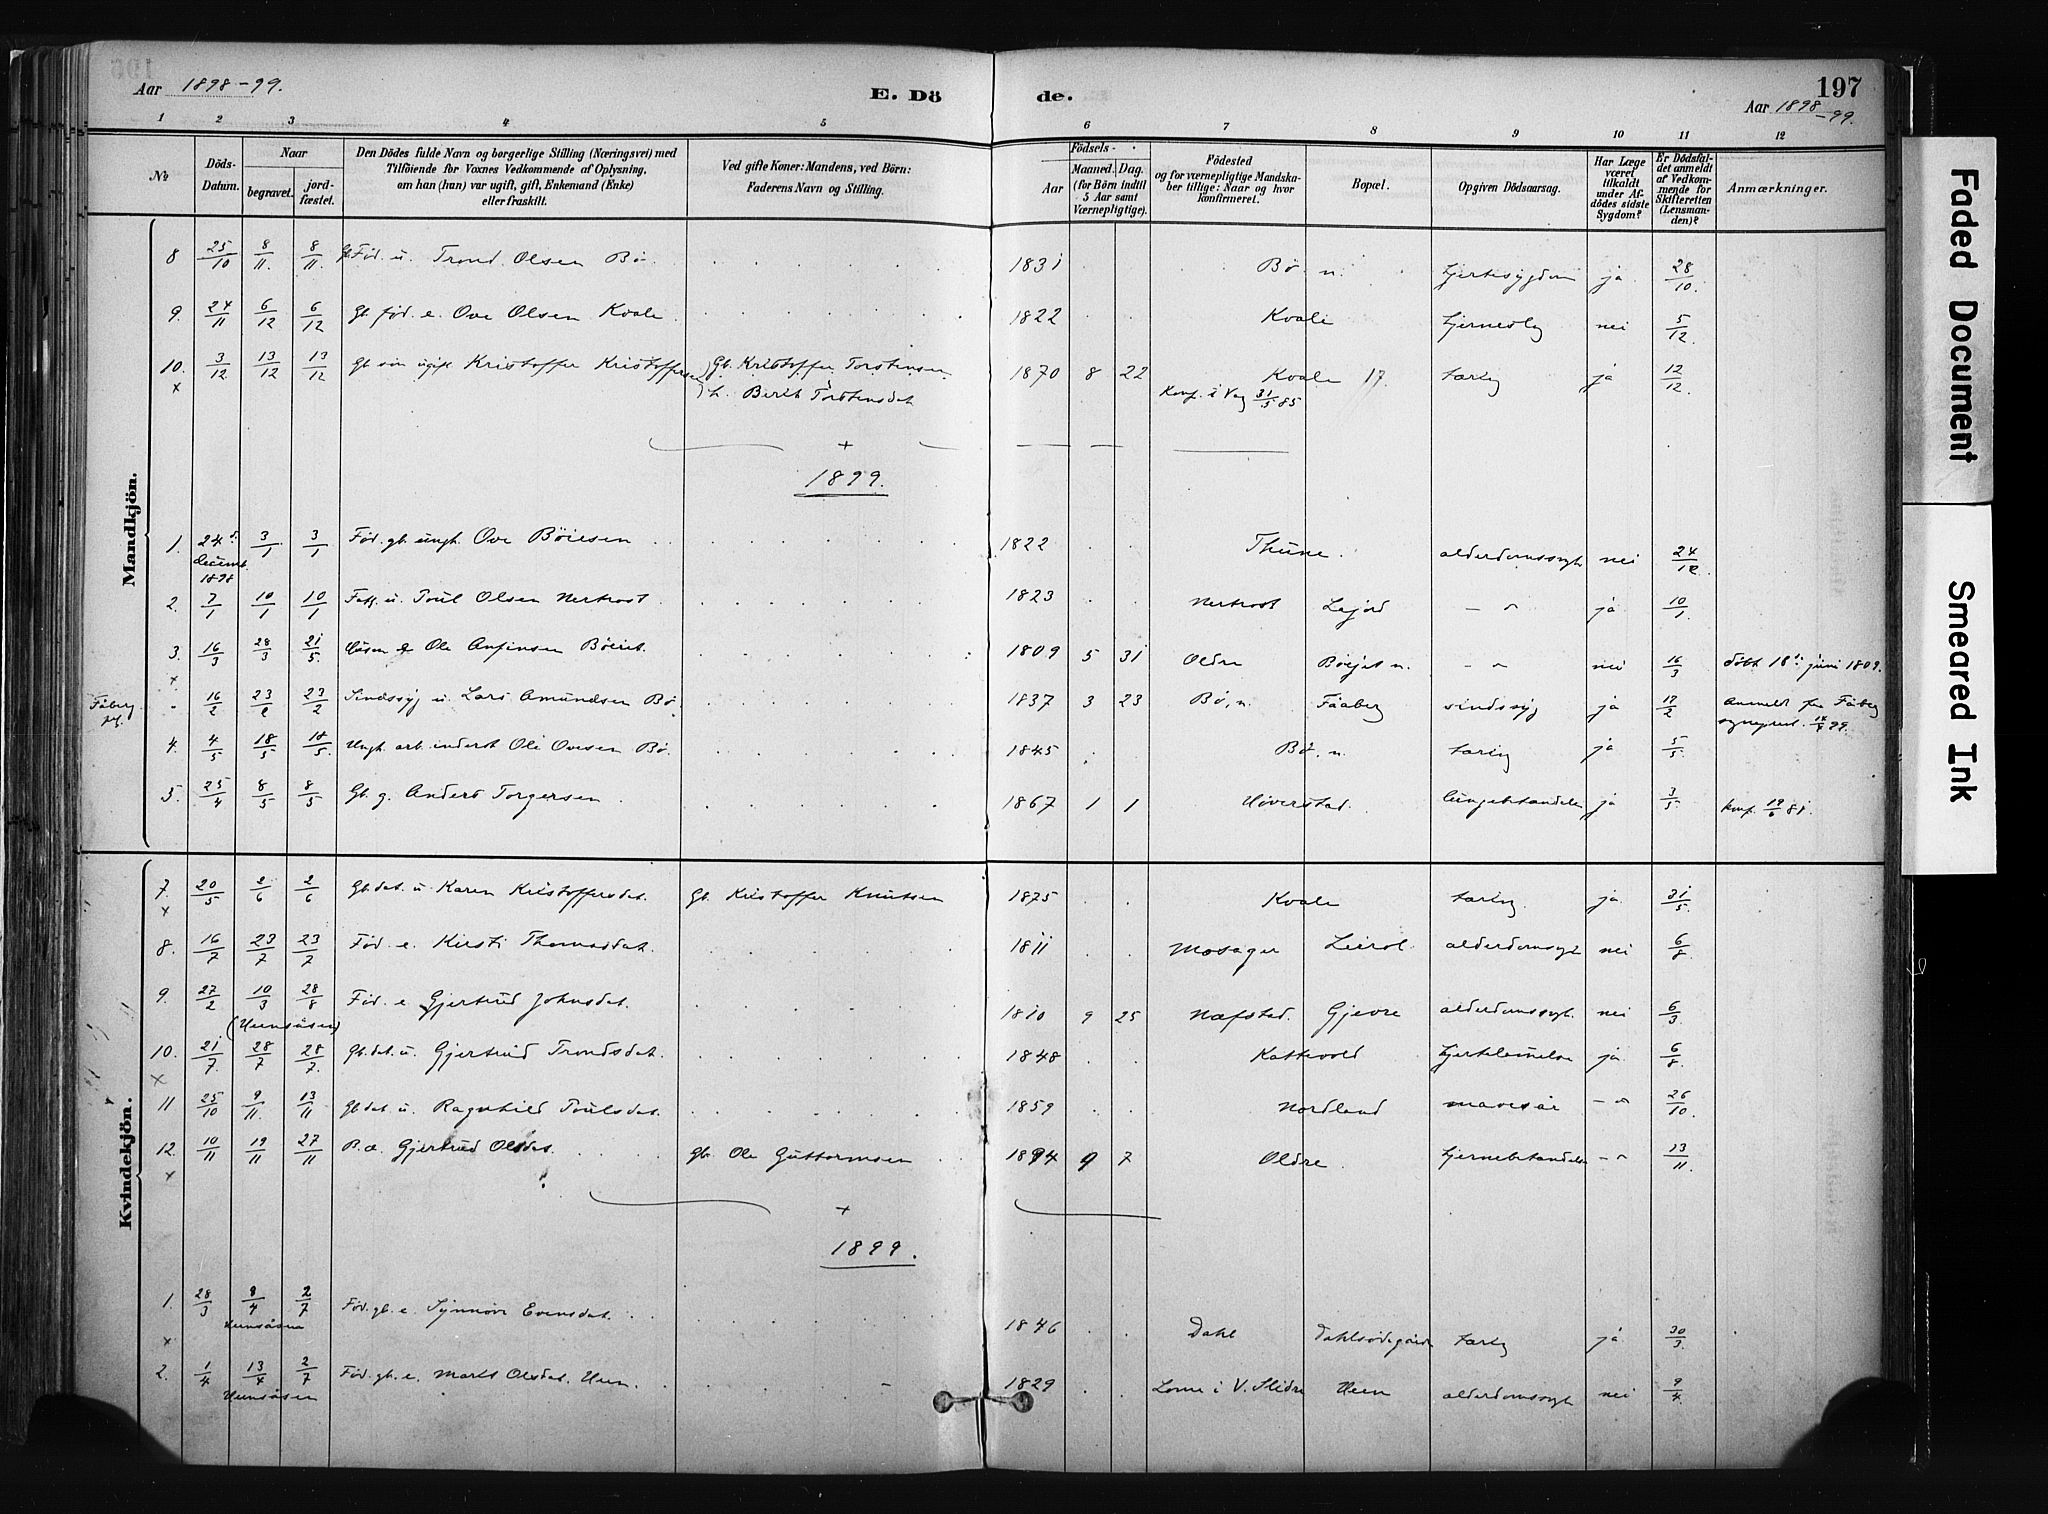 Aar 1898-99.
E. Dö de.
197
Aar 1898-99.
1 2 3 4 5 6 7 8 9 10 11 12
№
Döds-Datum.
Naar
begravet.
jord-fæstet.
Den Dödes fulde Navn og borgerlige Stilling (Næringsvei) med
Tilföiende for Voxnes Vedkommende af Oplysning,
om han (hun) var ugift, gift, Enkemand (Enke)
eller fraskilt.
Ved gifte Koner: Mandens, ved Börn:
Faderens Navn og Stilling.
Födsels-
Aar
Maaned. Dag.
(for Börn indtil
5 Aar samt
Værnepligtige).
Födested
og for værnepligtige Mandska-
ber tillige: Naar og hvor
konfirmeret.
Bopæl.
Opgiven Dödsaarsag.
Har Læge
været
tilkaldt
under Af-
dödes sidste
Sygdom?
Er Dödsfal-
det anmeldt
af Vedkom-
mende for
Skifteretten
(Lensman-
den)?
Anmærkninger.
Mandkjön.
8 25/10 8/11. 8/11. Föd. u. Trond Olsen Bö 1831 Bö n. hjertesygdom ja 28/10.
9. 24/11 6/12 6/12 Gb. föd. e. Ove Olsen Kvale 1822 Kvale nei 5/12.
10. 3/12 13/12 13/12 Gb. sön ugift Kristoffer Kristoffersen Gb. Kristoffer Torstensen 1870 8 22 Kvale 17. tæring ja 12/12.
x h. Berit Torstensdat Konf. i Vag 31/5 85
+
1899.
1. 24 decemb. 1898 3/1 3/1 Föd. gb. ungk. Ove Böiesen 1822 Thune. alderdomssvgh nei 24/12.
2. 7/1 10/1 10/1 u. Poul Olsen Nerkvost 1823 Nerkvost Lajord - " ja 10/1.
3. 16/3 28/3 21/5. Ole Anfinsen Böeiet. 1809 5 31 Oldre Böejet n. - " nei 16/3 döbt 18 juni 1809.
x
Fåberg - 16/2 23/2 23/2 Sindssyg u. Lars Amundsen Bö 1837 3 23 Bö, n. Fåaberg sindssyg ja 17/2 Anmeldt fra Fåberg
99.
4. 4/5 18/5 18/5. Ungk. arb. inderst Ole Ovesen Bö. 1845 Bö, n. tæring ja 5/5
5. 25/4 8/5 8/5 Gb. g. Anders Torgersen 1867 1 1 Höverstad. lungebetændelse ja 3/5 konf. 19/6 81.
Kvindekjön.
7. 20/5 2/6 2/6 Gb. dat. u. Karen Kristoffersdat. Gb. Kristoffer Knutsen 1875 Kvale tæring. ja 31/5.
x
8. 16/7 23/7 23/7 Föd. e. Kirsti Thomasdat. 1811 Mosager Leirol. alderdomssvgt nei 6/8.
9. 27/2 10/3 28/8 Föd. e. Gjertrud Johnsdat. 1810 9 25 Næfstad. Gjevre alderdomssvgt. nei 6/3.
(Uensåsen)
10. 21/7. 28/7 28/7. Gb. dat. u. Gjertrud Trondsdat. 1848 Kattevold hjertelammelse ja 6/8
x
11 25/10 9/11. 13/11 Gb. dat. u. Ragnhild Poulsdat. 1859 Nordland mavesår - " 26/10.
12. 10/11 19/11 27/11 B. æ. Gjertrud Olsdat. Gb. Ole Guttormsen 1894 9 7 Oldre. hjernebetændelse - " 13/11.
x
+
1899.
1. 28/3 8/4 2/7 Föd. gb. e. Synnöve Evensdat. 1846 Dahl Dahlsödegård tæring ja 30/3.
x
2. 1/4 13/4 2/7 Föd. gb. e. Marit Olsdat. Uen. 1829 Lome i V. Slidre Ueen alderdomssvgt nei 9/4
Uensåsen
Faded Document
Smeared Ink